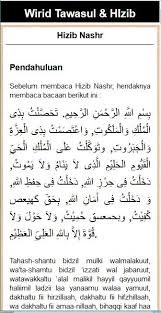 Wirid Tawasul & HIzib
Hizib Nashr
Pendahuluan
Sebelum membaca Hizib Nashr, hendaknya
membaca bacaan berikut ini :
بِسْمِ اللهِ الرَّحْمَنِ الرَّحِيمِ. تَحَصَّنْتُ بِذِى
الْمُلْكِ وَالْمَلَكُوتِ, وَاعْتَصَمْتُ بِذِى الْعِزَّةِ
وَالْجَبَرُوتِ, وَتَوَكَّلْتُ عَلَى الْمَلِكِ الْحَيِّ
الْقَيُّومِ الْحَلِيْمِ الَّذِى لاَ يَنَامُ وَلاَ يَمُوتُ,
دَخَلْتُ فِى حِرْزِ اللهِ, دَخَلْتُ فِى حِفْظِ اللهِ,
وَ دَخَلْتُ فِى أَمَانِ اللهِ, بِحَقِّ كهيعص
كُفِيْتُ, وبحمعسق حُمِيْتُ, وَلاَ حَوْلَ وَلاَ
قُوَّةَ إِلاَّ بِاللهِ الْعَلِيِّ الْعَظِيْمِ.
Tahash-shantu bidzil mulki walmalakuut,
wa'ta-shamtu bidzil 'izzati wal jabaruut,
watawakkaltu 'alal malikil hayyil qayyuumil
haliimil ladzii laa yanaamu walaa yamuut,
dakhaltu fii hirzillaah, dakhaltu fii hifzhillaah,
wa dakhaltu fii amaa-nillaah, bihaqqi kaaf haa